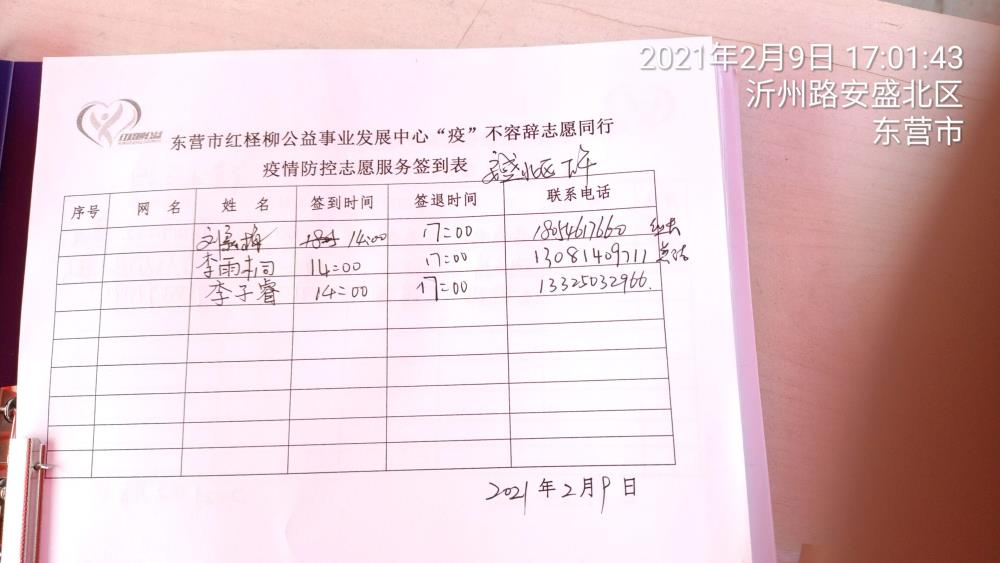 2021年2月9日 17:01:43
沂州路安盛北区
东营市
东营市红柽柳公益事业发展中心“疫”不容辞志愿同行
疫情防控志愿服务签到表 安盛北区下午
序号 网名 姓名 签到时间 签退时间 联系电话
14:00 17:00 18054617660
李雨桐 14:00 17:00 13081409711
李子睿 14:00 17:00 13325032966.
2021年2月9日